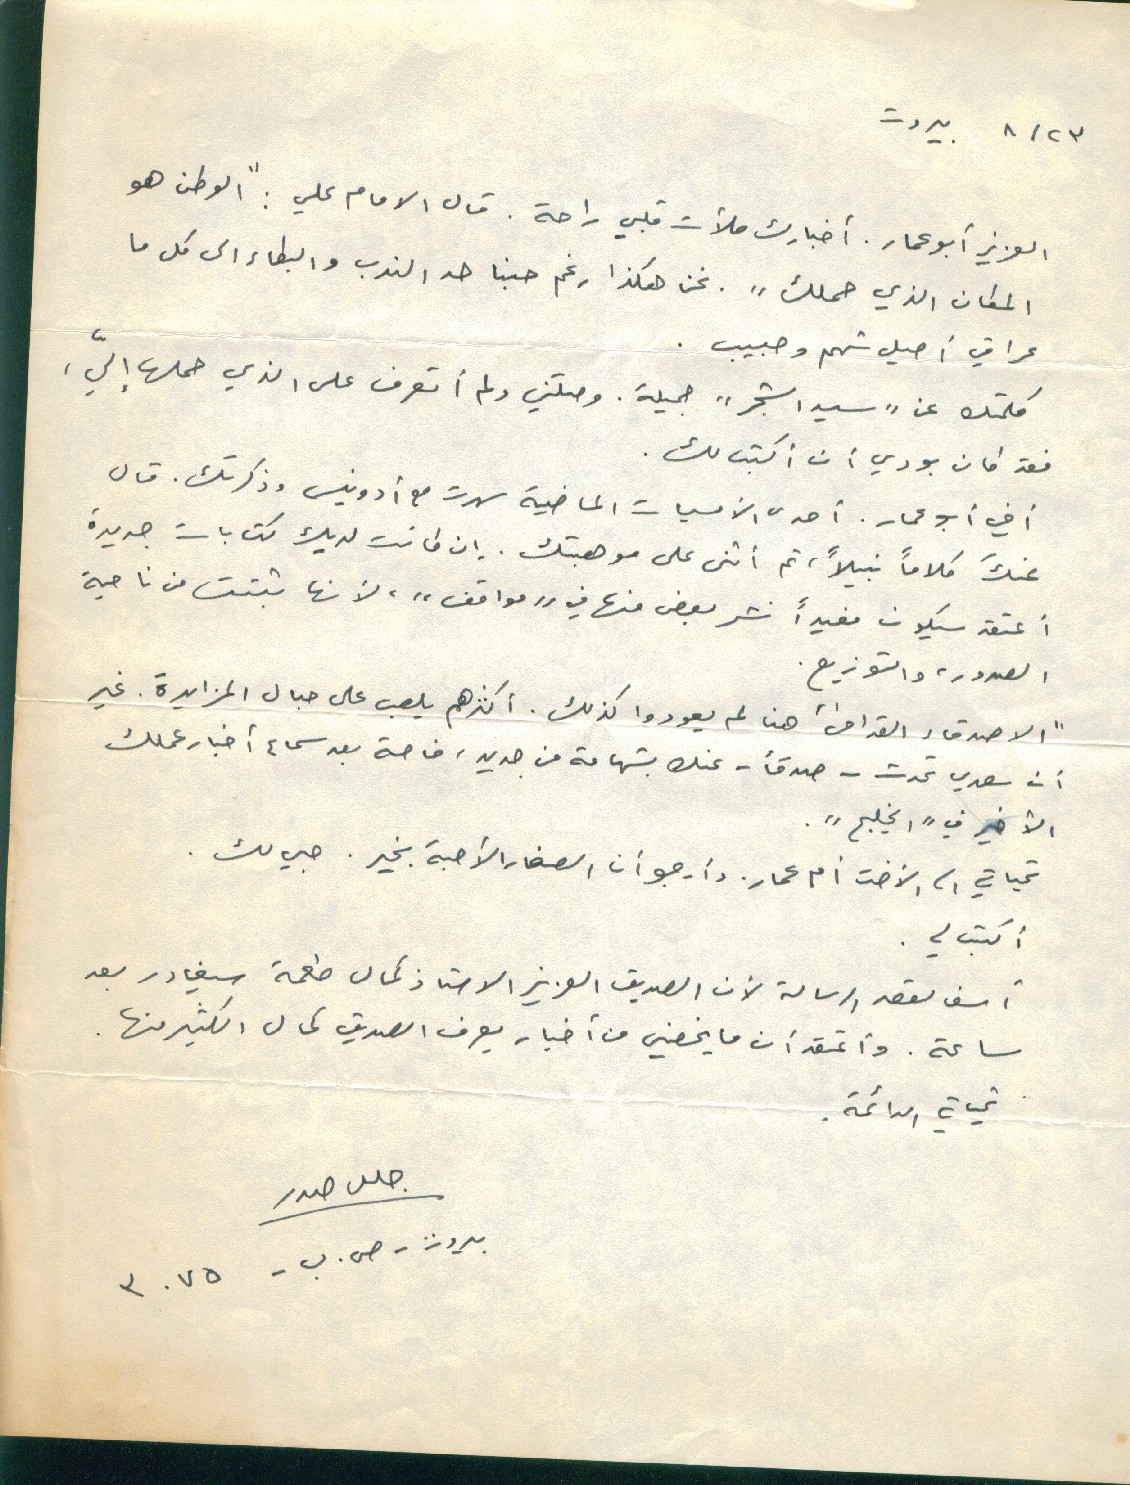 ٢٣/ ٨ بيروت
العزيز أبو عمار. أخبارك ملأت قلبي راحة. قال الامام علي: "الوطن هو
المكان الذي حملك". نحن هكذا رغم حبنا حد الندب والبكاء الى كل ما
عراقي أصيل شهم وحبيب.
كلمتك عن "سيد الشجر" جميلة. وصلتني ولم أتعرف على الذي حملها إليّ،
فقد كان بودي أن أكتب لك.
أخي أبو عمار. أحدى الأمسيات الماضية سهرت مع أدونيس وذكرتك. قال
عنك كلاماً نبيلاً، ثم أثنى على موهبتك. إن كانت لديك كتابات جديدة
أعتقد سيكون مفيداً نشر بعض منها في "مواقف"، لأنها ثبتت من ناحية
الصدور، والتوزيع.
"الاصدقاء القدامى" هنا لم يعودوا كذلك. أكثرهم يلعب على حبال المزايدة. غير
أن سعدي تحدث - صدقاً - عنك بشهامة من جديد، خاصة بعد سماع أخبار عملك
الأخير في "الخليج".
تحياتي الى الأخت أم عمار. وأرجو أن الصغار الأحبة بخير. حبي لك.
أكتب لي.
آسف لقصر الرسالة لأن الصديق العزيز الاستاذ كمال طعمة سيغادر بعد
ساعة. وأعتقد أن ما يخصني من أخبار يعرف الصديق كمال الكثير منها.
تحياتي الدائمة.
جليل حيدر
بيروت - ص. ب - ٣٠٧٥